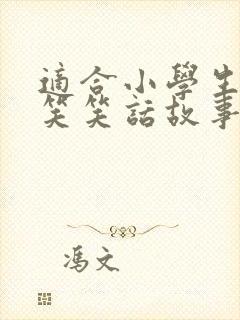 適合小學生
笑笑話故事
馮文